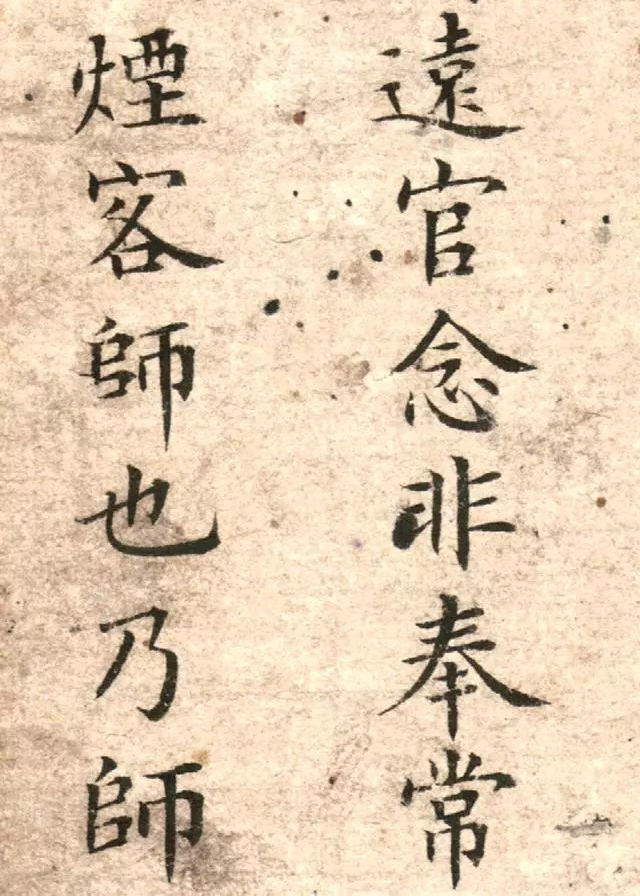 遠官念非奉常
煙客師也乃師